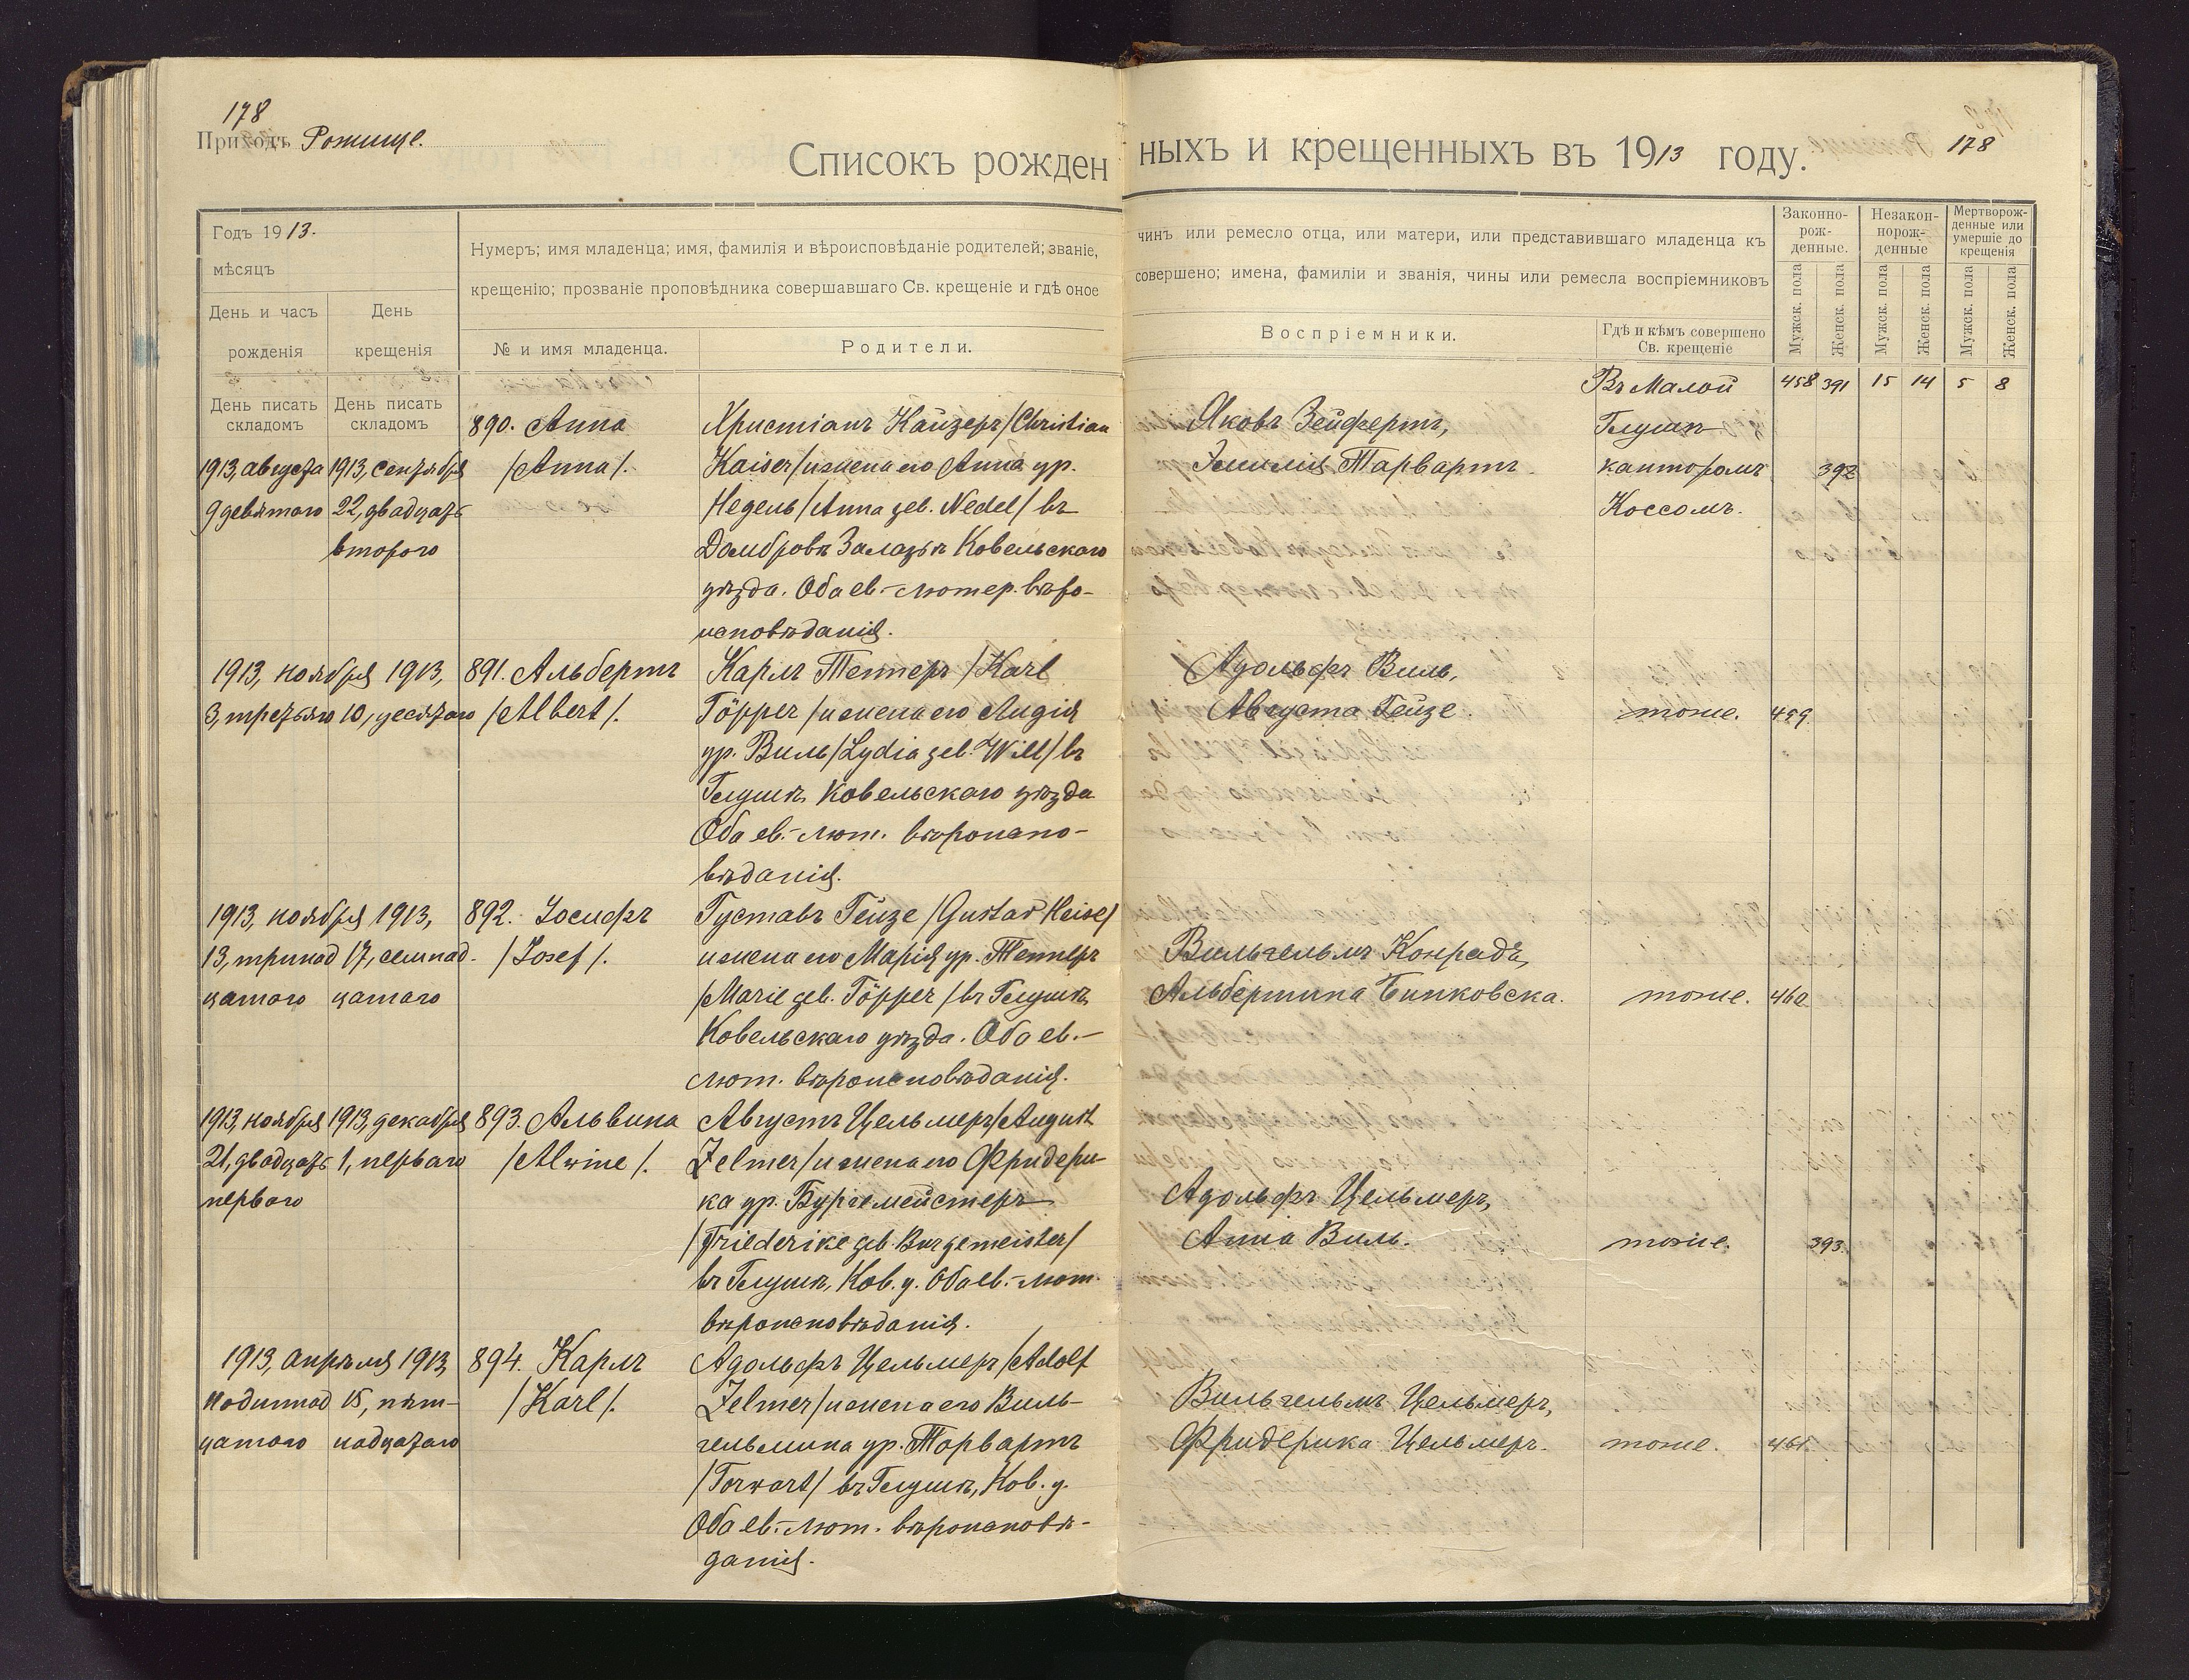 178
Приходъ Рожище.
178
Списокъ рожденныхъ и крещенныхъ въ 1913 году.
Годъ 1913.
мѣсяцъ
День и часъ рожденія
День крещенія
День писать складомъ
День писать складомъ
Нумеръ; имя младенца; имя, фамилія и вѣроисповѣданіе родителей; званіе, чинъ или ремесло отца, или матери, или представившаго младенца къ
крещенію; прозваніе проповѣдника совершавшаго Св. крещеніе и гдѣ оное совершено; имена, фамиліи и званія, чины или ремесла воспріемниковъ
№ и имя младенца.
Родители.
Воспріемники.
Гдѣ и кѣмъ совершено
Св. крещеніе
Законно-
рож-
денные.
Незакон-
норож-
денные
Мертворож-
денные или
умершіе до
крещенія
Мужск. пола
Женск. пола
Мужск. пола
Женск. пола
Мужск. пола
Женск. пола
458 391 15 14 5 8
1913, августа
9 девятаго
1913, сентября
22, двадцать
второго
890. Анна
/Anna/.
Христіанъ Кайзеръ /Christian
Kaiser/ и жена его Анна ур.
Недель /Anna geb. Nedel/ въ
Домбровѣ Залазѣ Ковельскаго
уѣзда. Оба ев.-лютер. вѣро-
исповѣданія.
Яковъ Зейфертъ,
Эмилія Тарвартъ
Въ Малой
Глушѣ
канторомъ
Коссомъ.
392
1913, ноября
3, третьяго
1913,
10, десятаго
891. Альбертъ
/Albert/.
Карлъ Тепперъ /Karl
Töpper/ и жена его Лидія
ур. Виль /Lydia geb. Will/ въ
Глушѣ, Ковельскаго уѣзда
Оба ев.-лют. вѣроиспо-
вѣданія.
Адольфъ Виль,
Августа Гейзе.
тоже.
459.
1913, ноября
13, тринад
цатаго
1913,
17, семнад-
цатаго
892. Іосифъ
/Josef/.
Густавъ Гейзе /Gustav Heise/
и жена его Марія ур. Тепперъ
/Marie geb. Töpper/ въ Глушѣ,
Ковельскаго уѣзда. Оба ев.-
лют. вѣроисповѣданія.
Вильгельмъ Конрадъ,
Альбертина Бинковска.
тоже.
460
1913, ноября
21, двадцать
перваго
1913, декабря
1, перваго
893. Альвина
/Alwine/.
Августъ Цельмеръ /August
Zelmer/ и жена его Фридери-
ка ур. Бургемейстеръ
/Friederike geb. Burgemeister/
въ Глушѣ, Ков. у. Оба ев.-лют.
вѣроисповѣданія.
Адольфъ Цельмеръ,
Анна Виль.
тоже.
393.
1913, апрѣля
11 одиннад
цатаго
1913
15, пят-
надцатаго
894. Карлъ
/Karl/.
Адольфъ Цельмеръ /Adolf
Zelmer/ и жена его Виль-
гельмина ур. Торвартъ
/Torwart/ въ Глушѣ, Ков. у.
Оба ев.-лют. вѣроисповѣ-
данія.
Вильгельмъ Цельмеръ,
Фридерика Цельмеръ.
тоже.
461.